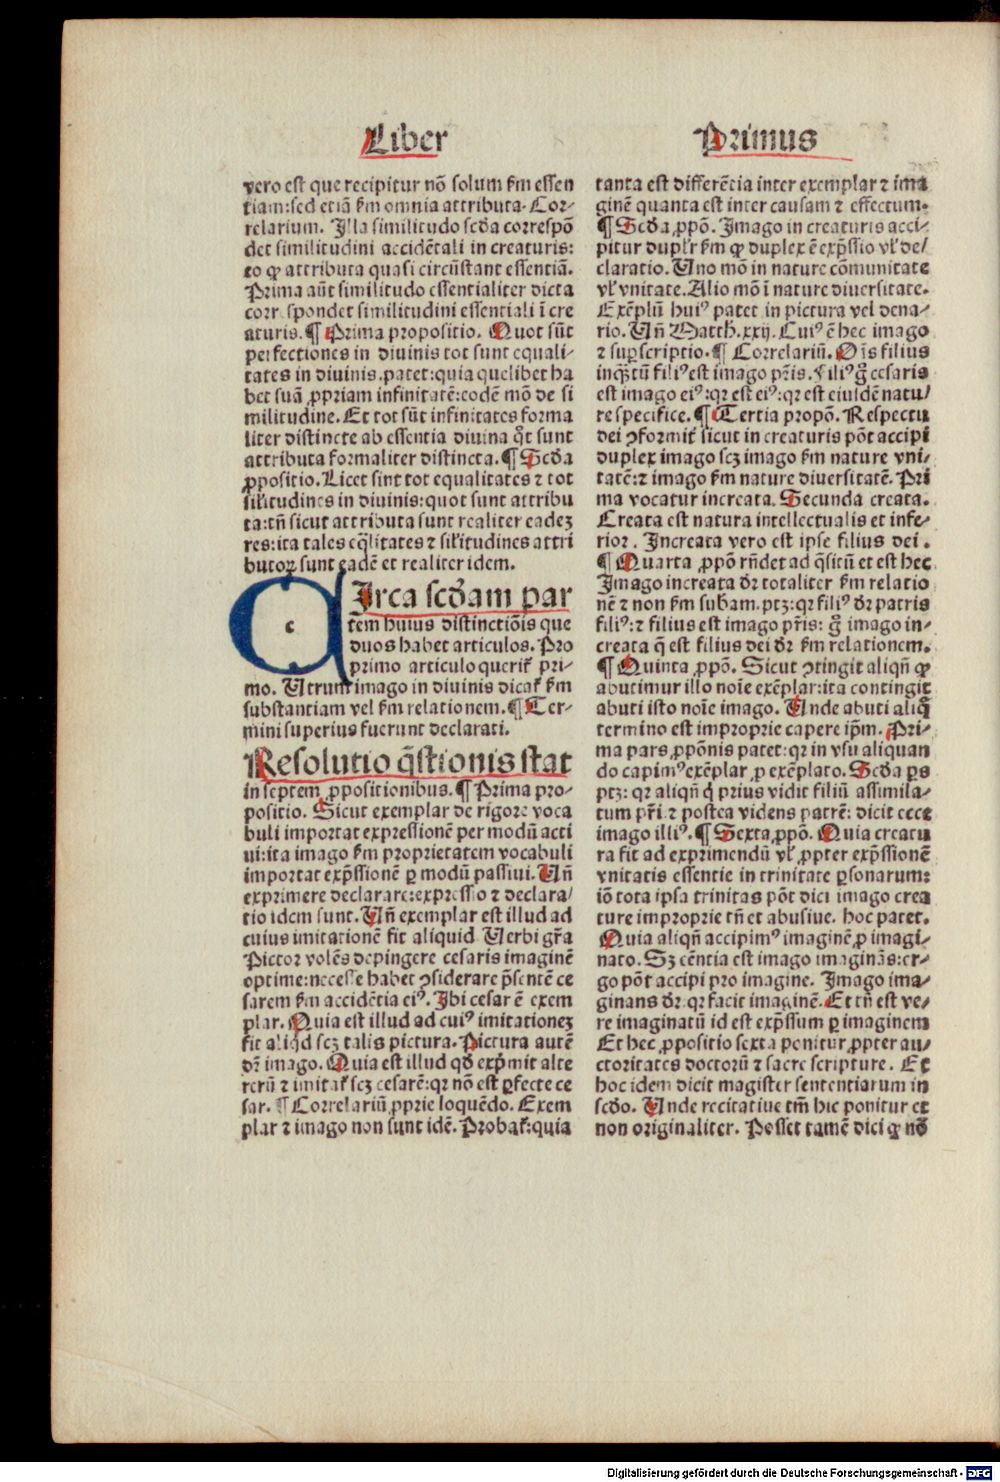 Liber
Primus
vero est que recipitur nō solum ẜm essen
tiam: sed etiā ẜm omnia attributa. Cor⸗
relarium. Illa similitudo scd̄a correspō
det similitudini accidētali in creaturis:
eo ꝙ attributa quasi circūstant essentiā.
Prima aūt similitudo essentialiter dicta
corr spondet similitudini essentiali ī cre
aturis. ¶ Prima propositio. Quot sūt
perfectiones in diuinis tot sunt equali⸗
tates in diuinis. patet: quia quelibet ha
bet suā ꝓpriam infinitatē: eodē mō de si
militudine. Et tot sūt infinitates forma
liter distincte ab essentia diuina qͦt sunt
attributa formaliter distincta. ¶ Scd̄a
ꝓpositio. Licet sint tot equalitates ⁊ tot
sil'itudines in diuinis: quot sunt attribu
ta: tn̄ sicut attributa sunt realiter eadeꝫ
res: ita tales eq̄litates ⁊ sil'itudines attri
butoꝝ sunt eadē et realiter idem.
c
Irca scd̄am par
tem huius distinctiōis que
duos habet articulos. Pro
primo articulo querit᷑ pri⸗
mo. Utrum imago in diuinis dicat᷑ ẜm
substantiam vel ẜm relationem. ¶ Ter⸗
mini superius fuerunt declarati.
Resolutio q̄stionis stat
in septem ꝓpositionibus. ¶ Prima pro⸗
positio. Sicut exemplar de rigore voca
buli importat expressionē per modū acti
ui: ita imago ẜm proprietatem vocabuli
importat exp̄ssionē ꝑ modū passiui. Un̄
exprimere declarare: expressio ⁊ declara⸗
tio idem sunt. Un̄ exemplar est illud ad
cuius imitationē fit aliquid Uerbi gr̄a
Pictor volēs depingere cesaris imaginē
optime: necesse habet ꝯsiderare p̄sentē ce
sarem ẜm accidētia eiꝰ. Ibi cesar ē exem
plar. Quia est illud ad cuiꝰ imitationeꝫ
fit aliqd̄ scꝫ talis pictura. Pictura autē
dr̄ imago. Quia est illud qd̄ exp̄mit alte
rerū ⁊ imitat᷑ scꝫ cesarē: qꝛ nō est ꝑfecte ce
sar. ¶ Correlariū ꝓprie loquēdo. Exem
plar ⁊ imago non sunt idē. Probat᷑: quia
tanta est differētia inter exemplar ⁊ ima
ginē quanta est inter causam ⁊ effectum.
¶ Scd̄a ꝓpō. Imago in creaturis acci⸗
pitur dupl'r ẜm ꝙ duplex ē exp̄ssio vl' de⸗
claratio. Uno mō in nature cōmunitate
vl' vnitate. Alio mō ī nature diuersitate.
Exēplū huiꝰ patet in pictura vel dena⸗
rio. Un̄ Matth. xxij. Cuiꝰ ē hec imago
⁊ suꝑscriptio. ¶ Correlariū. Oīs filius
inq̄ꝫtū filiꝰ est imago pr̄is. Filiꝰ gͦ cesaris
est imago eiꝰ: qꝛ est eiꝰ: qꝛ est eiusdē natu⸗
re specifice. ¶ Tertia propō. Respectu
dei ꝯformit᷑ sicut in creaturis pōt accipi
duplex imago scꝫ imago ẜm nature vni⸗
tatē: ⁊ imago ẜm nature diuersitatē. Pri
ma vocatur increata. Secunda creata.
Creata est natura intellectualis et infe⸗
rior. Increata vero est ipse filius dei.
¶ Quarta ꝓpō rn̄det ad q̄situ̅ et est hec
Imago increata dr̄ totaliter ẜm relatio
nē ⁊ non ẜm subam. ptꝫ: qꝛ filiꝰ dr̄ patris
filiꝰ: ⁊ filius est imago pr̄is: gͦ imago in⸗
creata q̄ est filius dei dr̄ ẜm relationem.
¶ Quinta ꝓpō. Sicut ꝯtingit aliqn̄ ꝙ
abutimur illo noīe exēplar: ita contingit
abuti isto noīe imago. Unde abuti aliqͦ
termino est improprie capere ip̄m. Pri⸗
ma pars ꝓpōnis patet: qꝛ in vsu aliquan
do capimꝰ exēplar ꝓ exēplato. Scd̄a ꝑs
ptꝫ: qꝛ aliqn̄ ꝗ prius vidit filiū assimila⸗
tum pr̄i ⁊ postea videns patrē: dicit ecce
imago illiꝰ. ¶ Sexta ꝓpō. Quia creatu
ra fit ad exprimendū vl' ꝓpter exp̄ssionē
vnitatis essentie in trinitate ꝑsonarum:
iō tota ipsa trinitas pōt dici imago crea
ture improprie tn̄ et abusiue. hoc patet.
Quia aliqn̄ accipimꝰ imaginē ꝓ imagi⸗
nato. Sꝫ cēntia est imago imagināns: er⸗
go pōt accipi pro imagine. Imago ima⸗
ginans dr̄. qꝛ facit imaginē. Et tn̄ est ve⸗
re imaginatū id est exp̄ssum ꝑ imaginem
Et hec ꝓpositio sexta ponitur ꝓpter au⸗
ctoritates doctorū ⁊ sacre scripture. Et
hoc idem dicit magister sententiarum in
scd̄o. Unde recitatiue tm̄ hic ponitur et
non originaliter. Posset tamē dici ꝙ nō
Digitalisierung gefördert durch die Deutsche Forschungsgemeinschaft - DFG